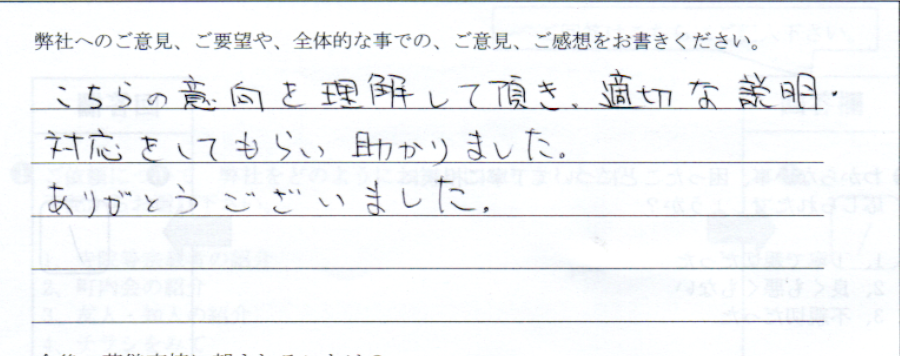 弊社へのご意見、ご要望や、全体的な事での、ご意見、ご感想をお書きください。
こちらの意向を理解して頂き、適切な説明・
対応をしてもらい助かりました。
ありがとうございました。